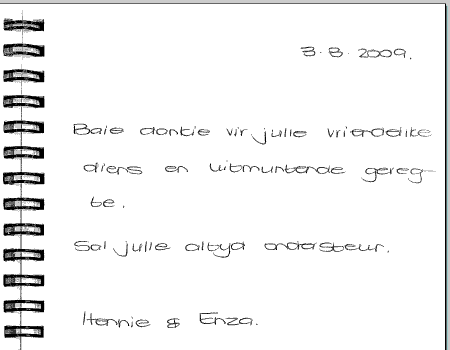 3.8.2009.
Baie dankie vir julle vriendelike
diens en uitmuntende gereg-
te.
Sal julle altyd ondersteun.
Hennie & Enza.